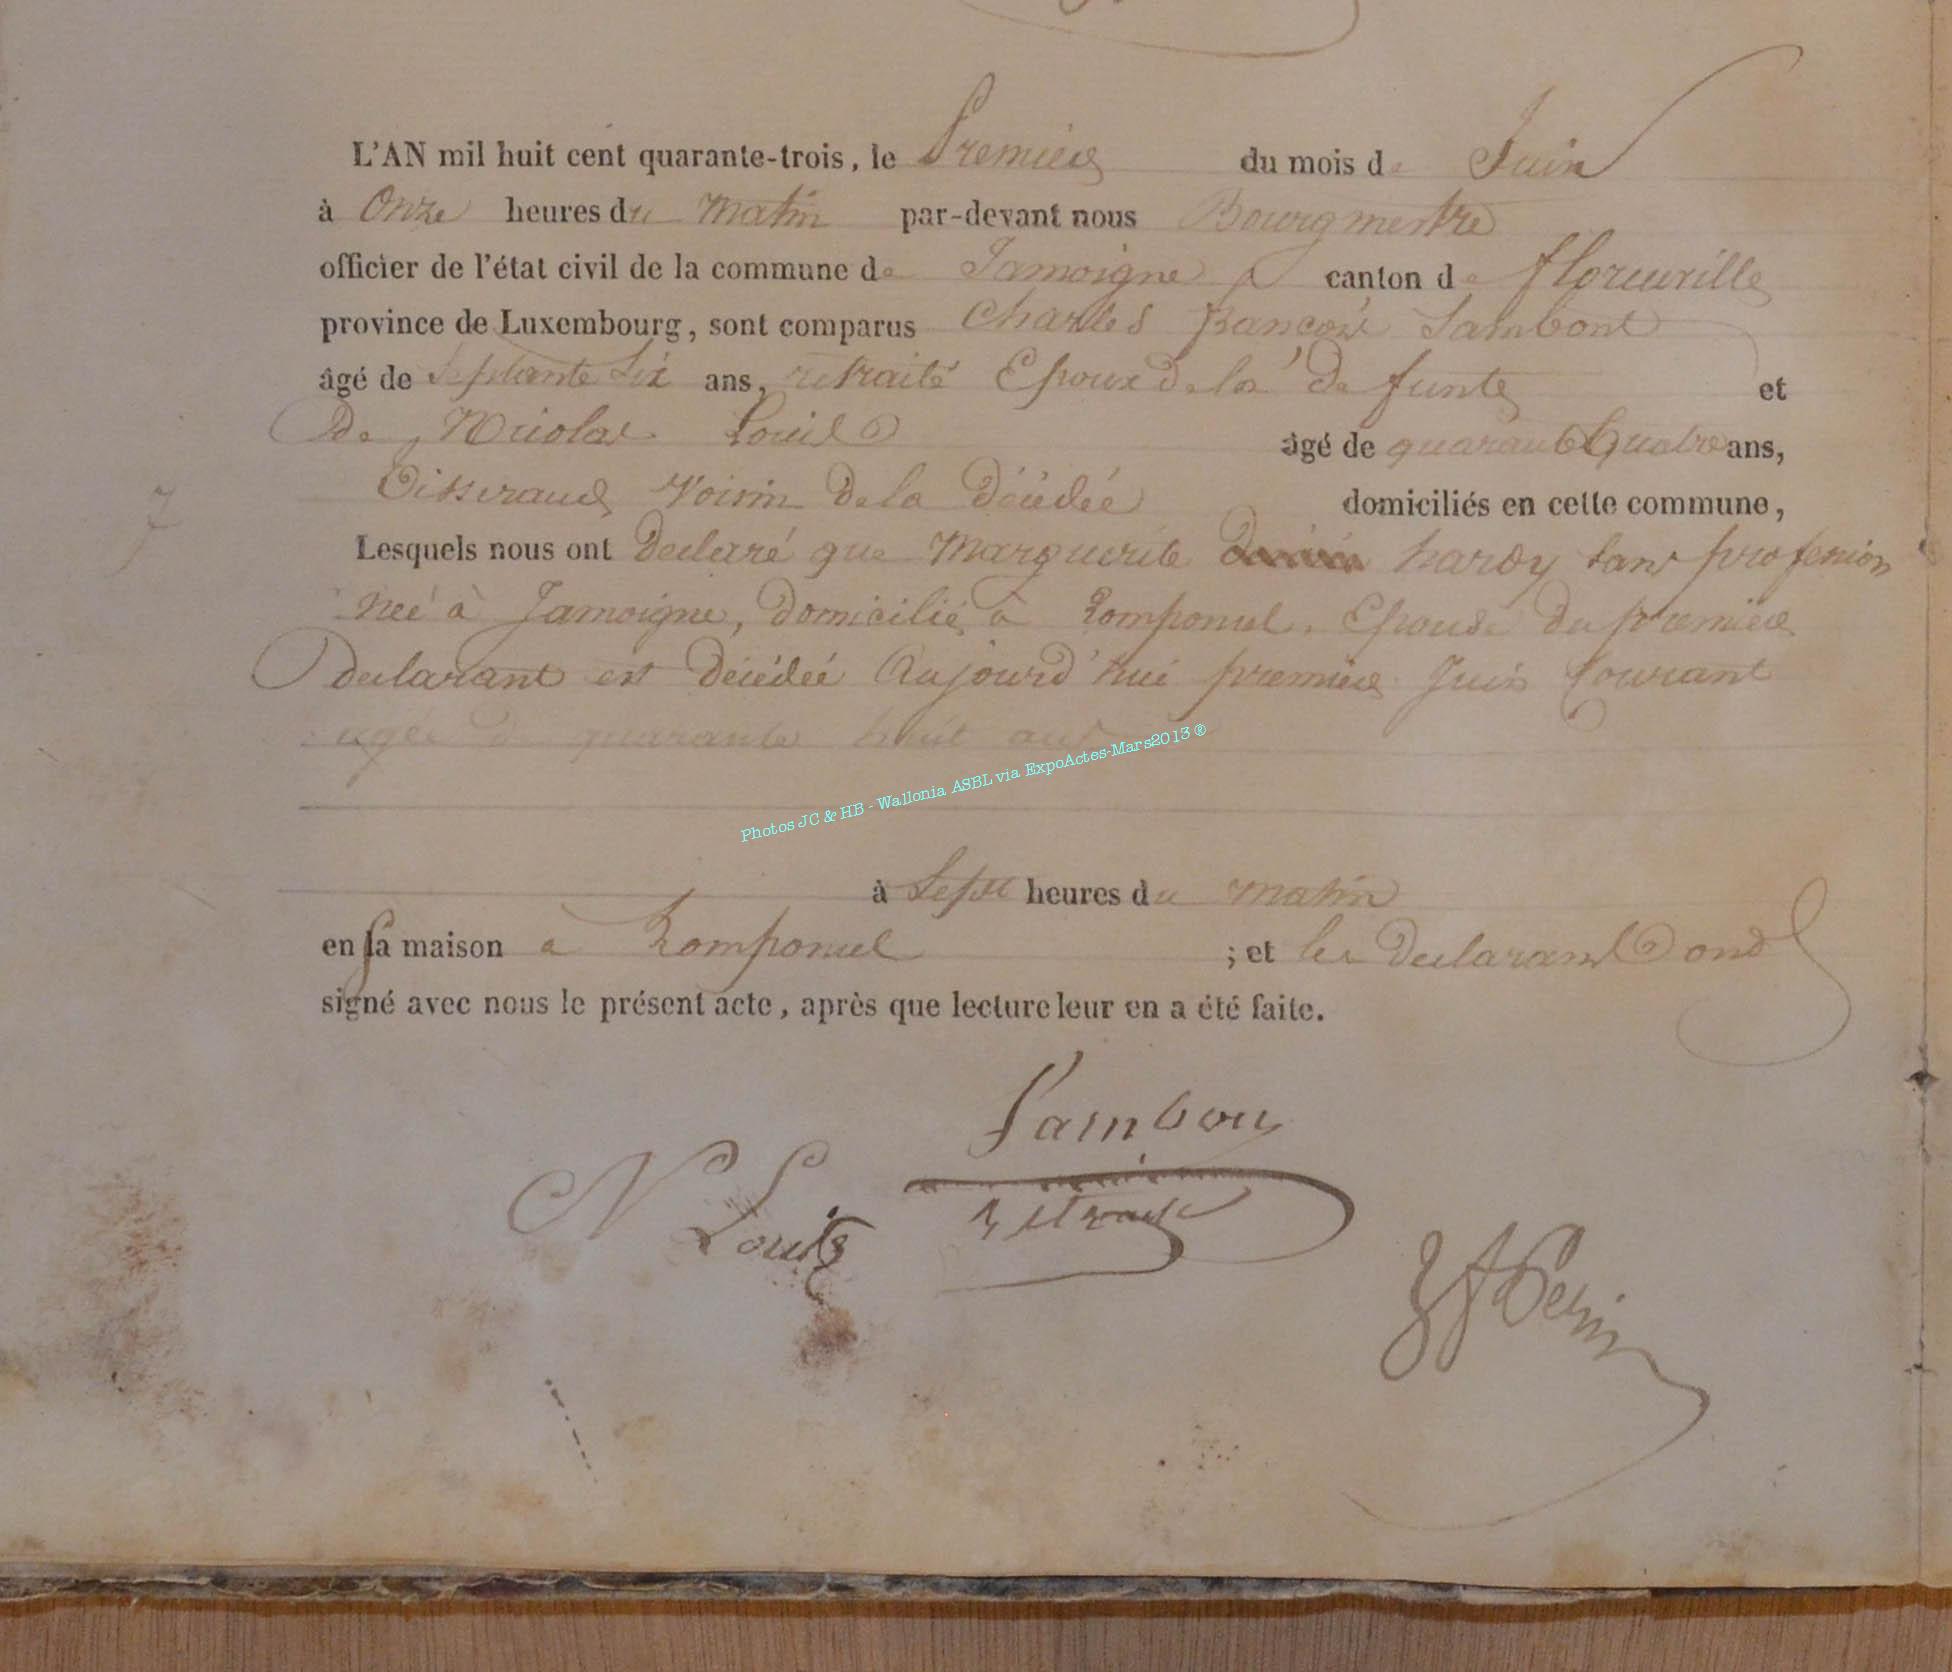 L'AN mil huit cent quarante-trois, le Premier du mois de Juin
à Onze heures du Matin par-devant nous Bourgmestre
officier de l'état civil de la commune de Jamoigne canton de florenville
province de Luxembourg, sont comparus Charles françois Sambont
âgé de Septante Six ans, retraité Epoux de la defunte et
de Nicolas Louis âgé de quarante quatre ans,
Tisserand, Voisin de la décédée domiciliés en cette commune,
Lesquels nous ont declaré que Marguerite hardy sans profession
née à Jamoigne, domicilié à Romponcel, Epouse du premier
declarant est décédée Aujourd'hui premier Juin Courant
agée de quarante huit ans
Photos JC & HB - Wallonia ASBL via ExpoActes-Mars2013 ®
à Sept heures du matin
en sa maison à Romponcel ; et les declarants ond
signé avec nous le présent acte, après que lecture leur en a été faite.
Sambon
N Louis
retraité
Perin